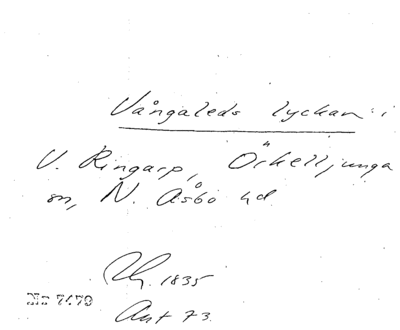 Vångaleds lyckan i
V. Ringarp, Örkelljunga
sn, N. Åsbo hd
1835
Nr 7479
Ant 73.